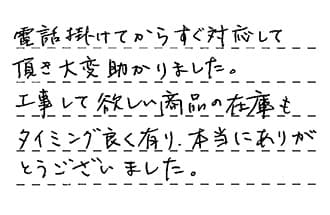 電話掛けてからすぐ対応して
頂き大変助かりました。
工事して欲しい商品の在庫も
タイミング良く有り、本当にありが
とうございました。